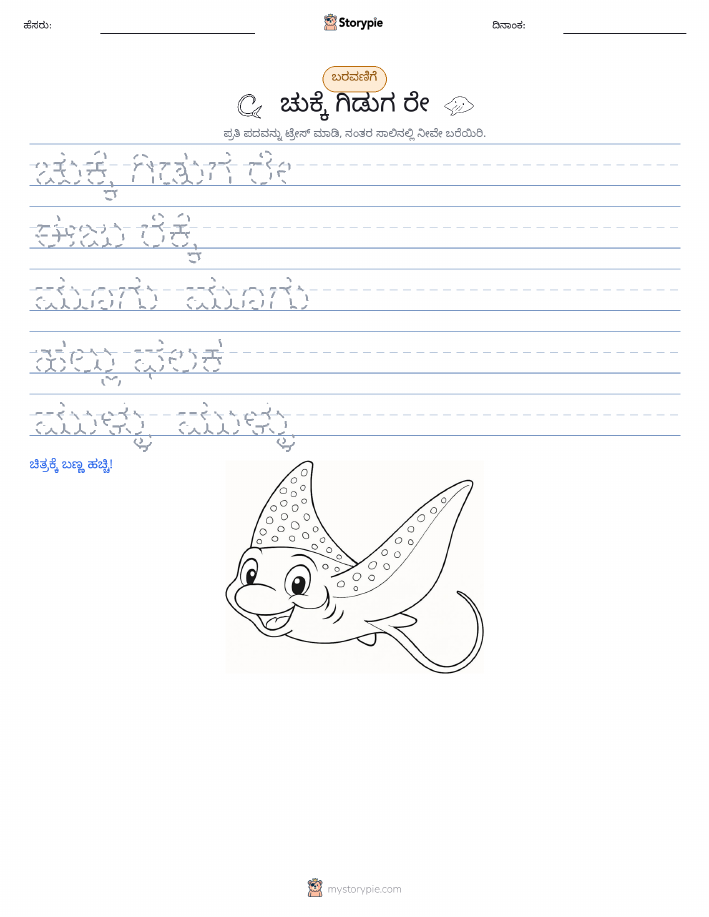 ಹೆಸರು:
Storypie
ದಿನಾಂಕ:
ಬರವಣಿಗೆ
ಚುಕ್ಕೆ ಗಿಡುಗ ರೇ
ಪ್ರತಿ ಪದವನ್ನು ಟ್ರೇಸ್ ಮಾಡಿ, ನಂತರ ಸಾಲಿನಲ್ಲಿ ನೀವೇ ಬರೆಯಿರಿ.
ಚುಕ್ಕೆ ಗಿಡುಗ ರೇ
ಈಜು ರೆಕ್ಕೆ
ಮೂಗು ಮೂಗು
ಹಲ್ಲು ಫಲಕ
ಮುಳ್ಳು ಮುಳ್ಳು
ಚಿತ್ರಕ್ಕೆ ಬಣ್ಣ ಹಚ್ಚಿ!
mystorypie.com